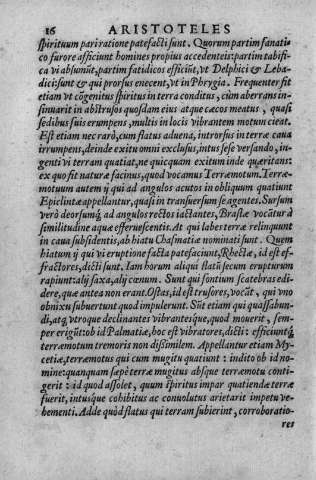 16 ARISTOTELES
spirituum pari ratione patefacti sunt. Quorum partim fanati-
co furore afficiunt homines propius accedenteis: partim tabifi-
ca vi absumūt, partim fatidicos efficiūt, vt Delphici & Leba-
dici: sunt & qui prorsus enecent, vt in Phrygia. Frequenter fit
etiam vt cōgenitus spiritus in terra conditus, cùm aberrans in-
sinuarit in abstrusos quosdam eius atque cæcos meatus, quasi
sedibus suis erumpens, multis in locis vibrantem motum cieat.
Est etiam nec rarò, cum flatus aduena, introrsus in terræ caua
irrumpens, deinde exitu omni exclusus, intus sese versando, in-
genti vi terram quatiat, ne quicquam exitum inde quæritans:
ex quo fit naturæ facinus, quod vocamus Terræmotum. Terræ-
motuum autem ij qui ad angulos acutos in obliquum quatiunt
Epiclintæ appellantur, quasi in transuersum se agentes. Sursum
verò deorsumq́; ad angulos rectos iactantes, Brastæ vocātur à
similitudine aquæ efferuescentis. At qui labes terræ relinquunt
in caua subsidentis, ab hiatu Chasmatiæ nominati sunt. Quem
hiatum ij qui vi eruptione facta patefaciunt, Rhectæ, id est ef-
fractores, dicti sunt. Iam horum aliqui flatū secum erupturum
rapiunt: alij saxa, alij cœnum. Sunt qui fontium scatebras edi-
dere, quæ antea non erant. Ostas, id est trusores, vocāt, qui vno
obnixu subuertunt quod impulerunt. Sūt etiam qui quassabun-
di, atq; vtroque declinantes vibranteisque, quod mouerit, sem-
per erigūt: ob id Palmatiæ, hoc est vibratores, dicti: efficiuntq́;
terræmotum tremoris non dissimilem. Appellantur etiam My-
cetiæ, terræmotus qui cum mugitu quatiunt: indito ob id no-
mine: quanquam sæpè terræ mugitus absque terræmotu conti-
gerit: id quod assolet, quum spiritus impar quatiendæ terræ
fuerit, intusque cohibitus ac conuolutus arietarit impetu ve-
hementi. Adde quòd flatus qui terram subierint, corroboratio-
res